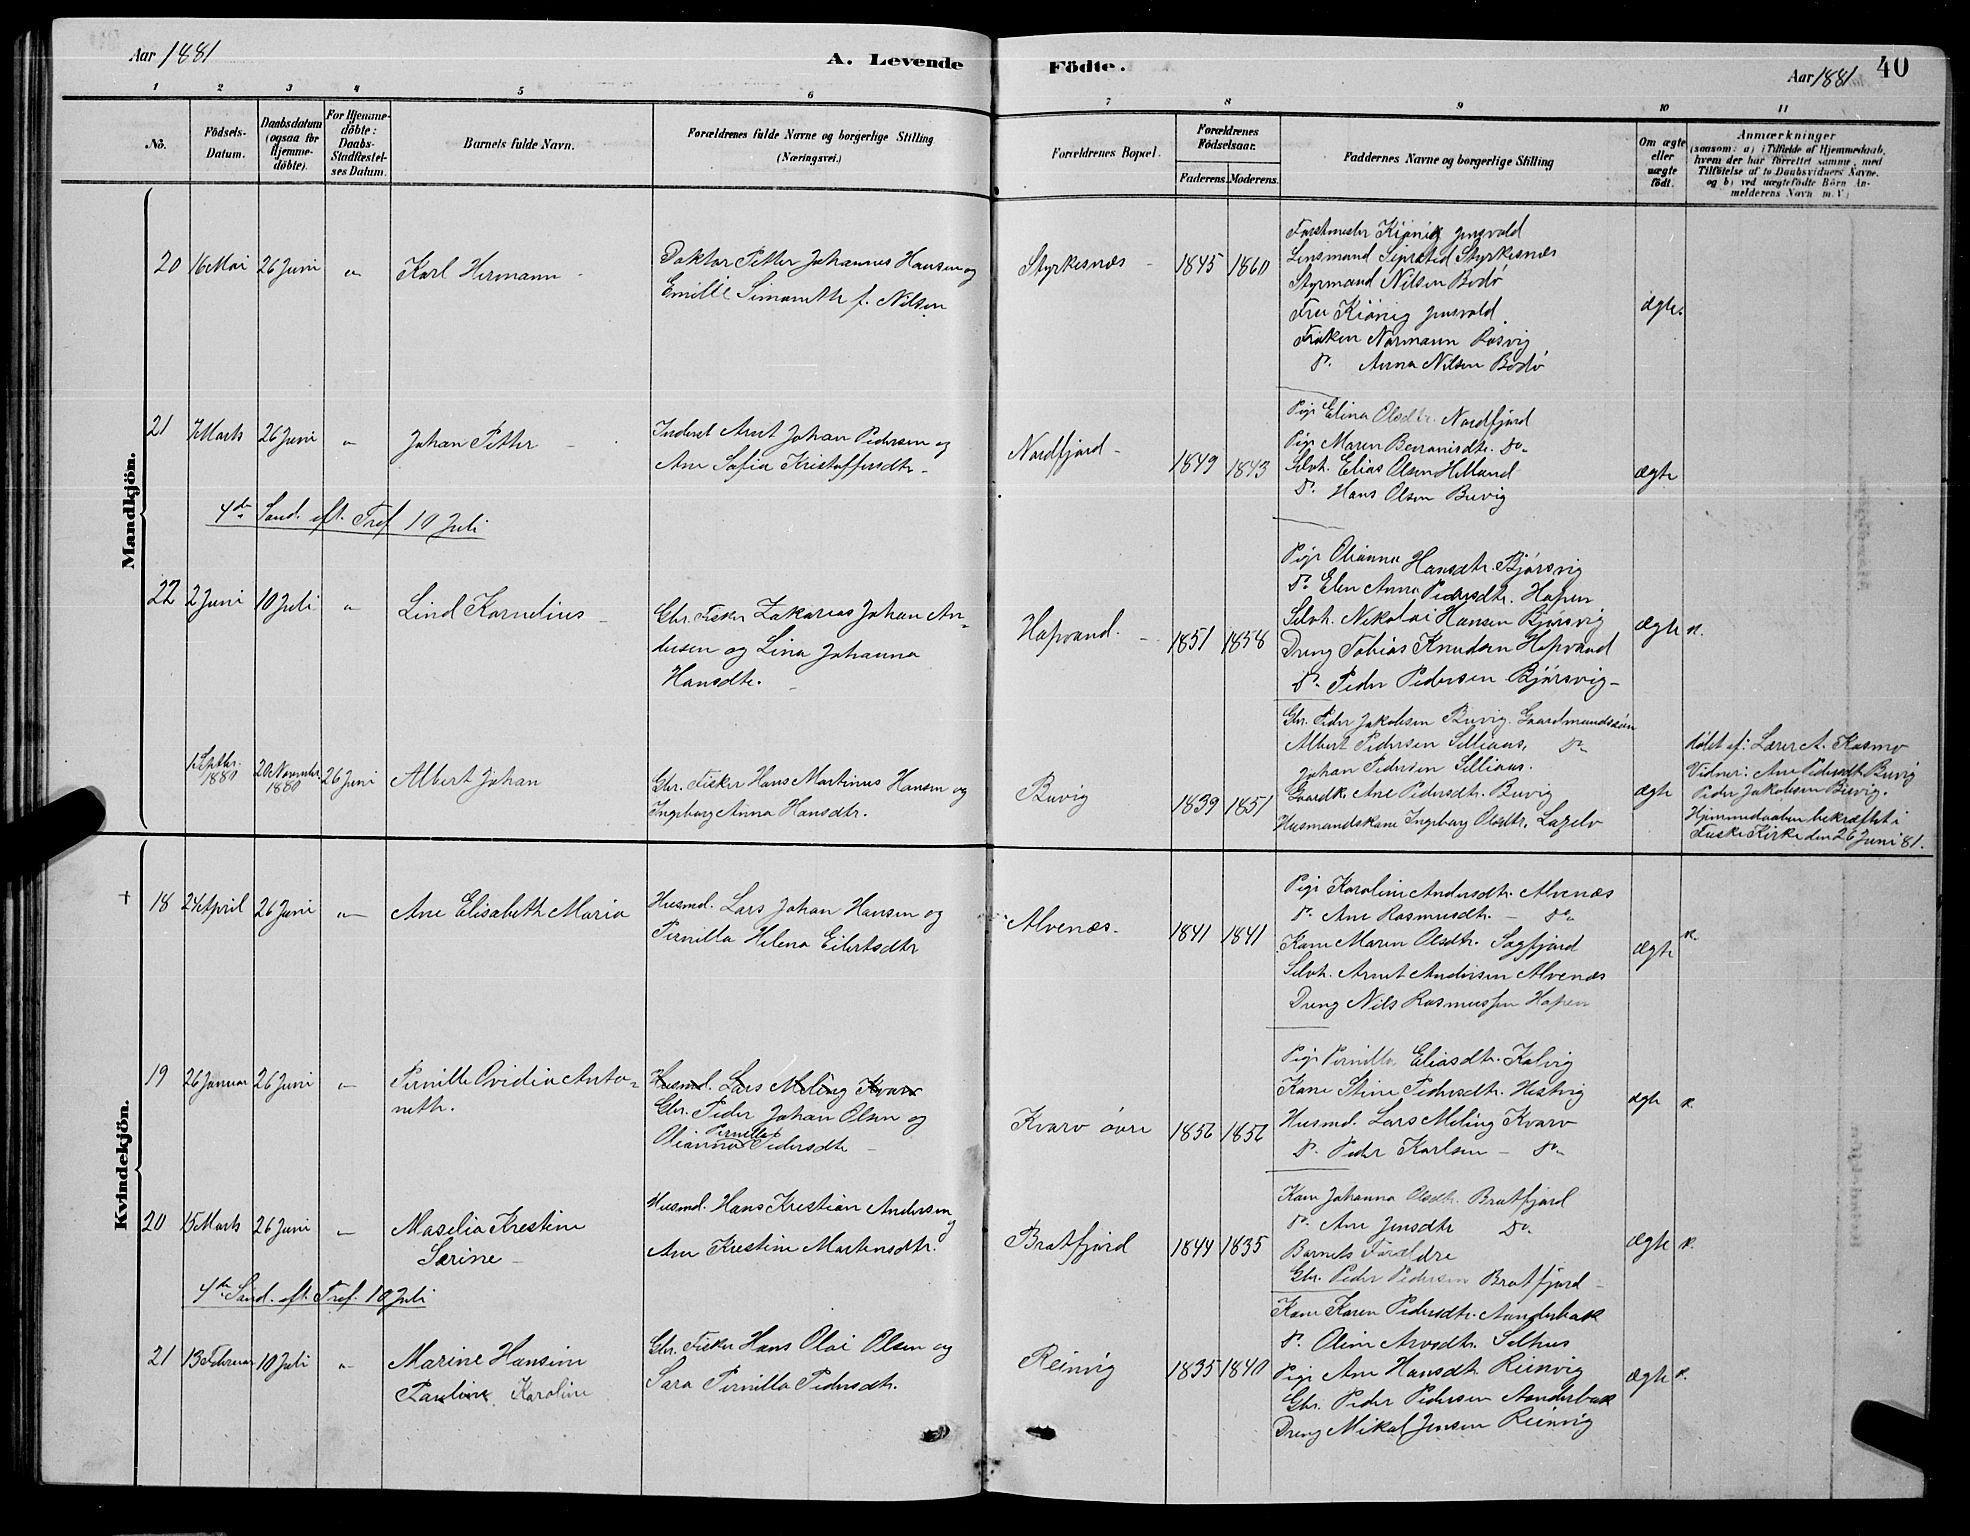 Aar 1881
A. Levende Födte.
Aar 1881
40
1 2 3 4 5 6 7 8 9 10 11
No.
Födsels-Datum.
Daabsdatum (ogsaa for Hjemme-döbte).
For Hjemme-döbte: Daabs-Stadfæstel-ses Datum.
Barnets fulde Navn.
Forældrenes fulde Navne og borgerlige Stilling (Næringsvei.)
Forældrenes Bopæl.
Forældrenes Födselsaar.
Faderens. Moderens.
Faddernes Navne og borgerlige Stilling
Om ægte eller uægte födt.
Anmærkninger
(saasom: a) i Tilfælde af Hjemmedaab,
hvem der har forrettet samme, med
Tilföielse af to Daabsvidners Navne.
og b) ved uægtefödte Börn An-
melderens Navn m. V.)
Mandkjön.
20 16 Mai 26 Juni " Karl Hermann
Doktor Petter Johannes Hansen og
Emilie f. Nilsen
Styrkesnæs 1845 1860
Forstmester Kiönig
Lensmand Styrkesnæs
Styrmand Nilsen Bodö
Fru Kiönig
Fröken Normann Rösvig
Do. Anna Nilsen Bodö
ægte.
21 7 Marts 26 Juni " Johan Petter
Inderst Arnt Johan Pedersen og
Ane Sofia Kristoffersdtr.
Nordfjord 1849 1843
Pige Elina Olsdtr. Nordfjord
Pige Maren Do.
Selvh. Elias Olsen Helland
Do. Hans Olsen Buvig
ægte
4de Sönd. eft. Tref. 10 Juli
22 2 Juni 10 Juli " Lind Kornelius
Gbr. Fisker Zakarias Johan An-
dersen og Lina Johanna
Hansdtr.
Hopvand. 1851 1858
Pige Olianna Hansdtr. Bjørsvig
Do. Elen Anna Pedersdtr. Hopen
Selvh. Nikolai Hansen Bjørsvig
Dreng Tobias Knudsen Hopvand
Do. Peder Pedersen Bjørsvig
ægte
1 Septbr. 1880 20 November 1880 26 Juni Albert Johan
Gbr. Fisker Hans Martinus Hansen og
Ingeborg Anna Hansdtr.
Buvig 1839 1851
Gbr. Peder Jakobsen Buvig. Gaardmandssön
Albert Pedersen Selliaas, Do.
Johan Pedersen Selliaas.
Gaardk. Ane Pedersdtr. Buvig
Husmandskone Ingeborg Olsdtr.
ægte
döbt af: Lærer A. Kosmo
Vidner: Ane Pedersdtr. Buvig
Peder Jakobsen Buvig.
Hjemmedaaben bekræftet i
Fuske Kirke den 26 Juni 81.
Kvindekjön.
+ 18 24 April 26 Juni " Ane Elisabeth Maria
Husmd. Lars Johan Hansen og
Pernilla Helena Eilertsdtr
Alvenæs. 1841 1841
Pige Karoline Andersdtr. Alvenæs
Do. Ane Rasmusdtr. Do.
Kone Maren Olsdtr. Sagfjord
Selvh. Arnt Andersen Alvenæs
Dreng Nils Rasmussen Hopen
ægte
19 26 Januar 26 Juni " Pernille Ovidia Anto-
nette.
Husmd. Lars Meling Kvarv
Gbr. Peder Johan Olsen og
Pernilla
Olianna Pedersdtr
Kvarv övre 1856 1856
Pige Pernilla Eliasdtr. Kalvig
Kone Stine Pedersdtr. Hestvig
Husmd. Lars Meling Kvarv
Do. Peder Karlsen Do.
ægte
20 15 Marts 26 Juni " Maselia Krestine
Serine
Husmd. Hans Krestian Andersen og
Ane Krestine Mortensdtr.
Bratfjord 1844 1835
Kone Johanna Olsdtr. Bratfjord
Do. Ane Jensdtr Do.
Barnets Forældre
Gbr. Peder Pedersen Bratfjord
ægte
4de Sönd. eft. Tref. 10 Juli
21 13 Februar 10 Juli " Marine Hansine
Pauline Karoline
Gbr. Fisker Hans Olai Olsen og
Sara Pernilla Pedersdtr.
Reinvig 1835 1840
Kone Karen Pedersdtr. Aanderbak
Do. Oline Selhus
Pige Ane Hansdtr. Reinvig
Gbr. Peder Pedersen Aanderbak
Dreng Mikal Jensen Reinvig
ægte